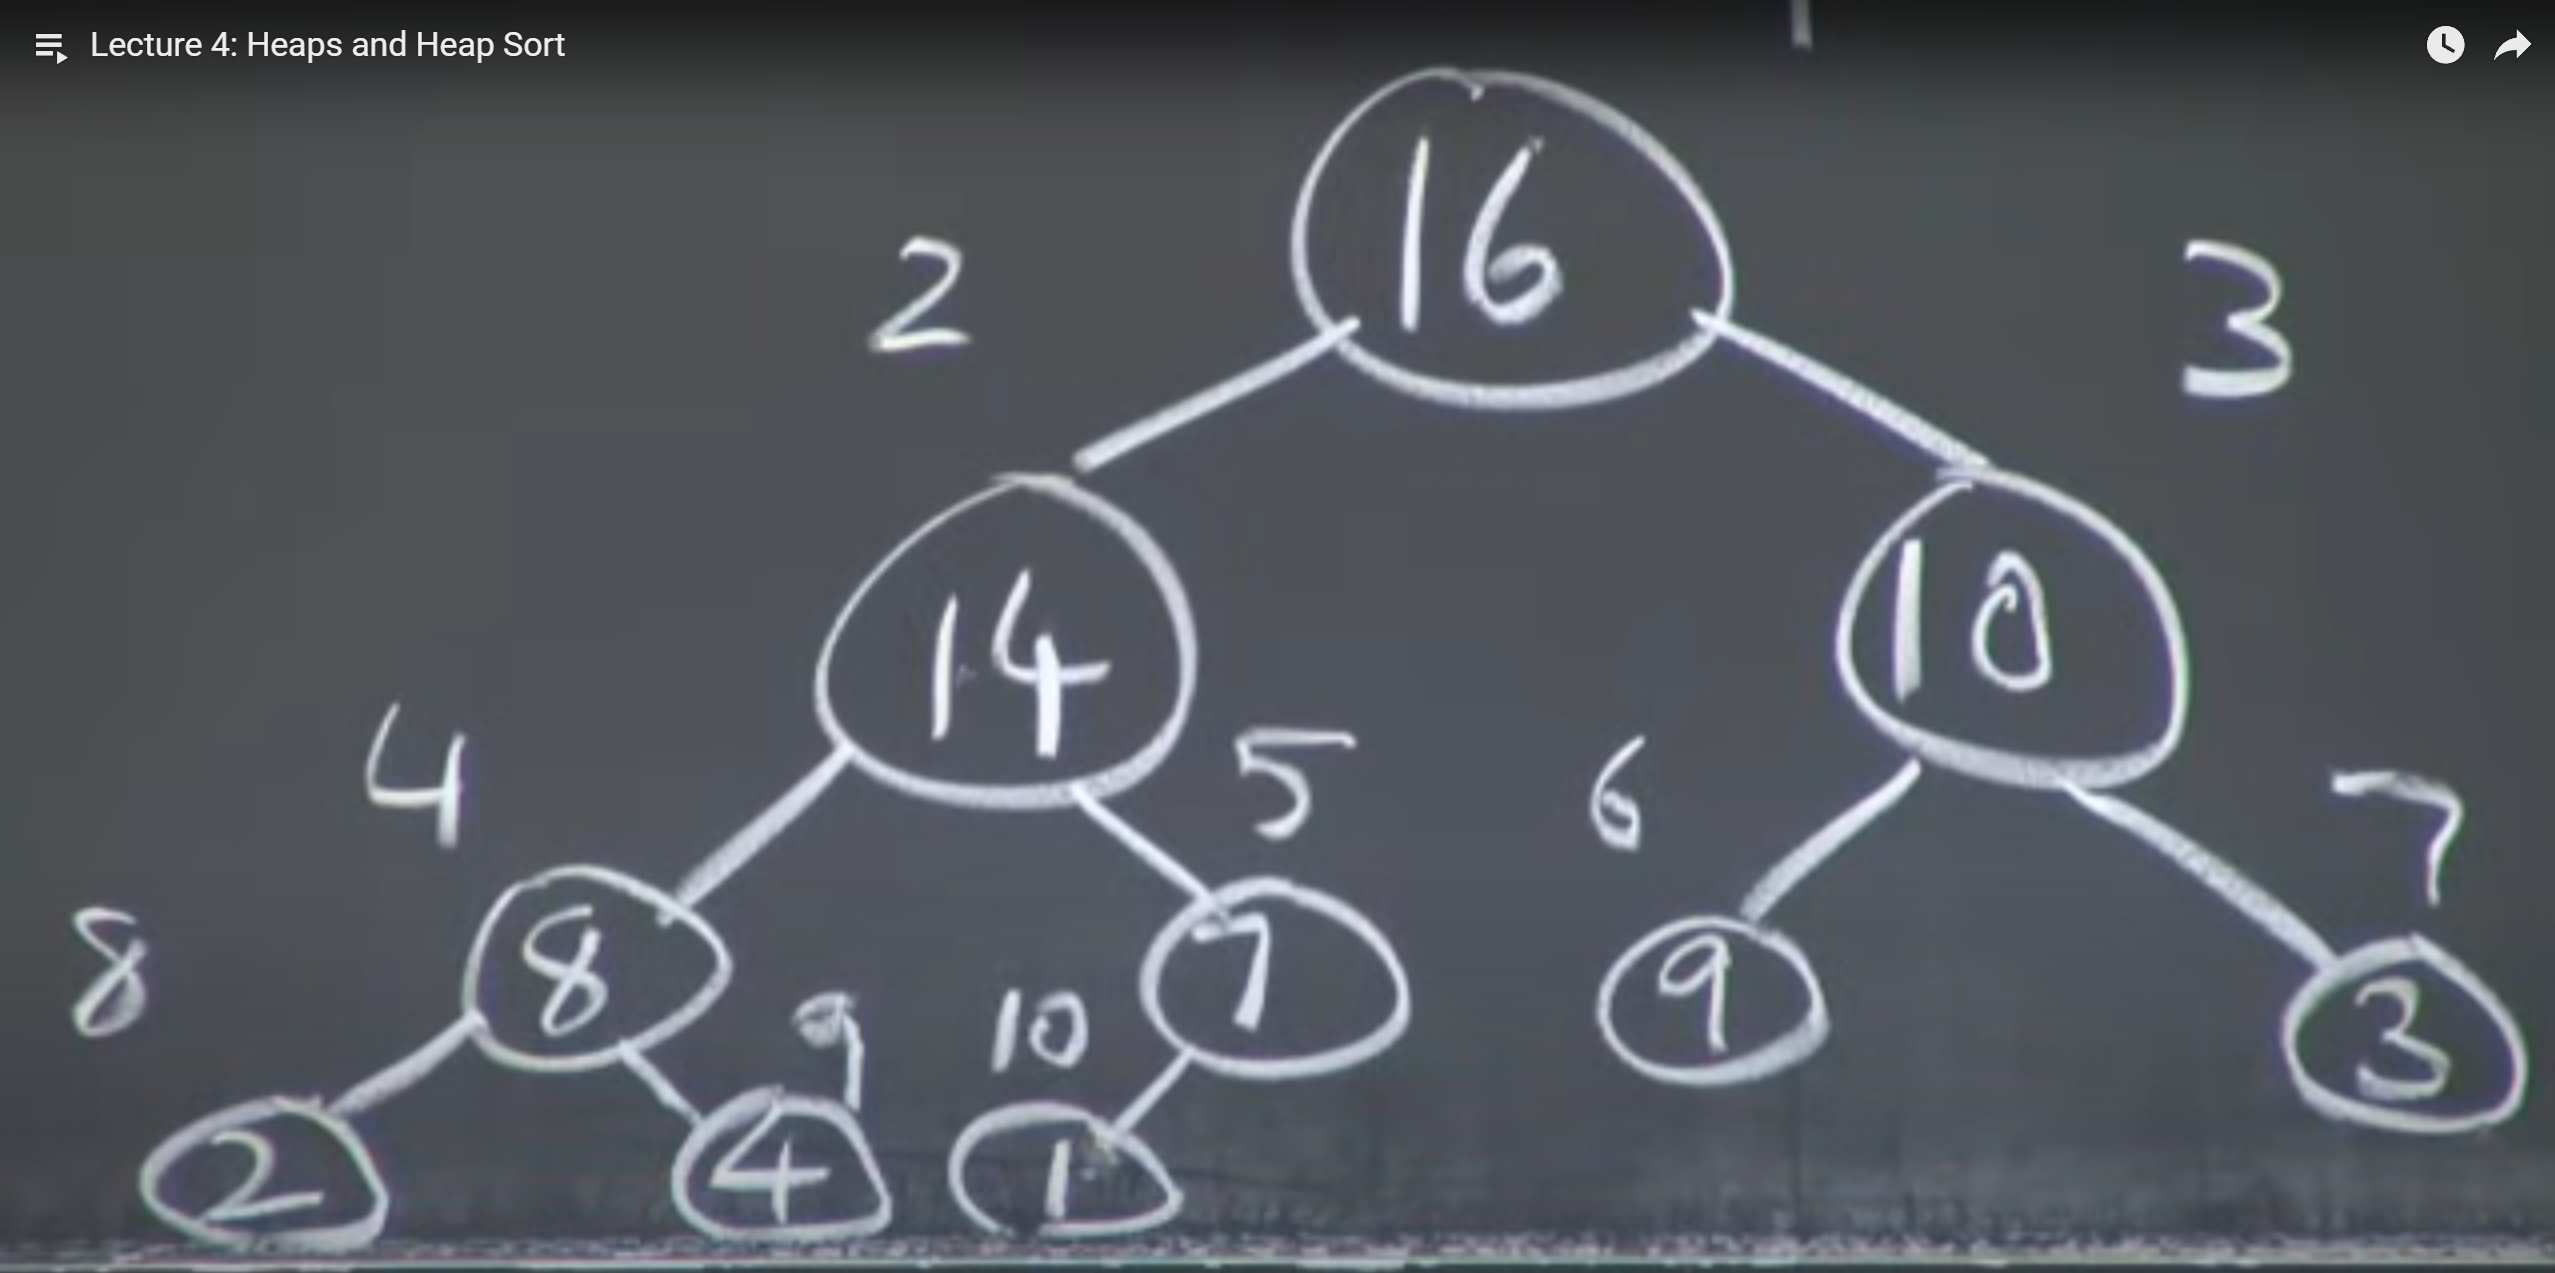 Lecture 4: Heaps and Heap Sort
1
16
2
3
14
10
4
5
6
7
8
8
7
9
3
9
10
2
4
1